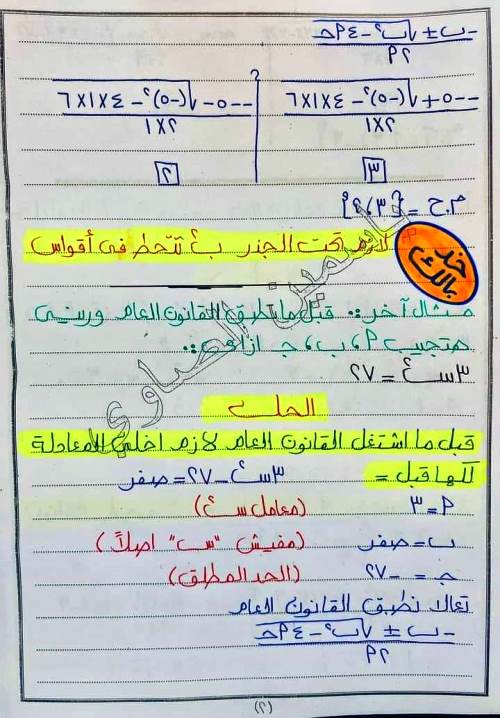 -ب ± √ب² - ٤أجـ
٢أ
--٥ + √(-٥)² - ٤×١×٦
٢×١
٣
--٥ - √(-٥)² - ٤×١×٦
٢×١
٢
م.ح = {٣، ٢}
خد بالك
لازم تحت الجذر ب² تتحط فى أقواس
مثال آخر:. قبل ما تطبق القانون العام ورينى
هتجيب أ، ب، جـ ازاى:.
٣س² = ٢٧
الحل
قبل ما اشتغل القانون العام لازم اخلى المعادلة
كلها قبل =
٣س² - ٢٧ = صفر
أ = ٣ (معامل س²)
ب = صفر (مفيش "س" اصلاً)
جـ = -٢٧ (الحد المطلق)
تعالا نطبق القانون العام
-ب ± √ب² - ٤أجـ
٢أ
(٢)
ياسمين الصاوي